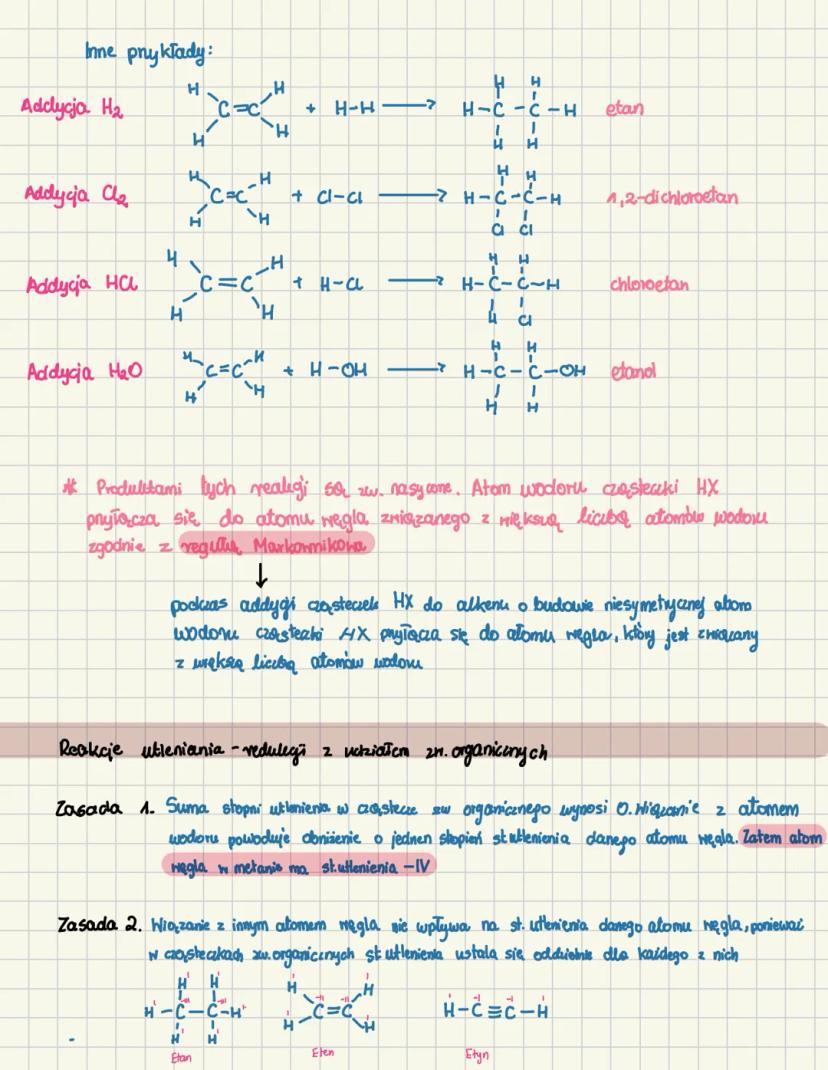 Inne przykłady:
Addycja H₂ H H C=C H H + H-H → H H H-C-C-H H H etan
Addycja Cl₂ H H C=C H H + Cl-Cl → H H H-C-C-H Cl Cl 1,2-dichloroetan
Addycja HCl H H C=C H H + H-Cl → H H H-C-C-H H Cl chloroetan
Addycja H₂O H H C=C H H + H-OH → H H H-C-C-OH H H etanol
* Produktami tych reakcji są zw. nasycone. Atom wodoru cząsteczki HX
przyłącza się do atomu węgla związanego z większą liczbą atomów wodoru
zgodnie z regułą Markownikowa
↓
podczas addycji cząsteczek HX do alkenu o budowie niesymetrycznej atom
wodoru cząsteczki HX przyłącza się do atomu węgla, który jest związany
z większą liczbą atomów wodoru
Reakcje utleniania-redukcji z udziałem zw. organicznych
Zasada 1. Suma stopni utlenienia w cząsteczce zw organicznego wynosi 0. Wiązanie z atomem
wodoru powoduje obniżenie o jeden stopień st.utlenienia danego atomu węgla. Zatem atom
węgla w metanie ma st.utlenienia -IV
Zasada 2. Wiązanie z innym atomem węgla nie wpływa na st. utlenienia danego atomu węgla, ponieważ
w cząsteczkach zw.organicznych st.utlenienia ustala się oddzielnie dla każdego z nich
H H H H
H-C-C-H C=C H-C≡C-H
H H H H
Etan Eten Etyn